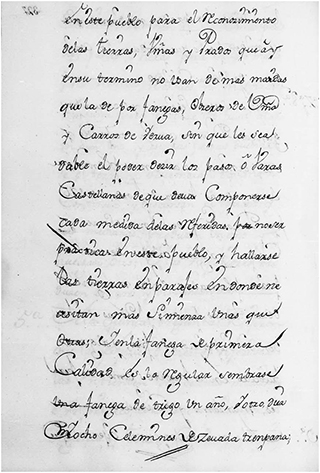 en este pueblo para el Reconozimiento
delas tierras, Viñas y Prados que ay
en su termino no usan de mas medidas
que la de por fanegas, obreros de Viña
y Carros de Yerva, sin que les sea
dable el poder dezir los pasos, o Varas
Castellanas de que deva Componerse
cada medida delas Referidas, por no ser
practica en este Pueblo, y hallarse
las tierras en parajes en donde ne
cesitan mas Simienza unas que
otras; en la fanega de primera
Calidad es lo Regular sembrarse
una fanega de trigo un año, y otro diez
Ocho Celemines de zevada